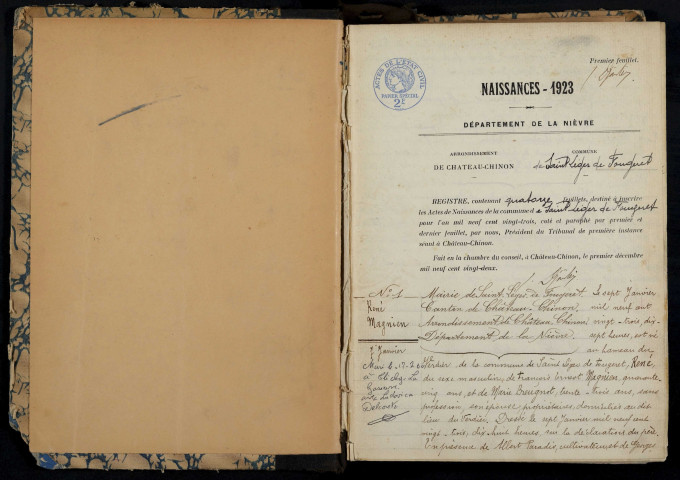 Premier feuillet.
ACTES DE L'ETAT CIVIL
PAPIER SPECIAL
2F
NAISSANCES - 1923
DÉPARTEMENT DE LA NIÈVRE
ARRONDISSEMENT
COMMUNE
DE CHATEAU-CHINON
de Saint Léger de Fougeret
REGISTRE, contenant quatorze feuillets, destiné à inscrire
les Actes de Naissances de la commune de Saint Léger de Fougeret
pour l'an mil neuf cent vingt-trois, coté et paraphé par premier et
dernier feuillet, par nous, Président du Tribunal de première instance
séant à Château-Chinon.
Fait en la chambre du conseil, à Château-Chinon, le premier décembre
mil neuf cent vingt-deux.
N° 1
René
Magnien
7 Janvier
Mairie de Saint Léger de Fougeret
Canton de Château-Chinon
Arrondissement de Château-Chinon
Département de la Nièvre
Le sept Janvier
mil neuf cent
vingt-trois, dix-
sept heures, est né
au hameau du
Verdier de la commune de Saint Léger de Fougeret, René,
du sexe masculin, de François Ernest Magnien, quarante
cinq ans, et de Marie Breugnot, trente-trois ans, sans
profession, son épouse, propriétaires, domiciliés au dit
lieu du Verdier. Dressé le sept Janvier mil neuf cent
vingt-trois, dix-huit heures, sur la déclaration du père.
En présence de Albert Paradis, cultivateur et de Georges